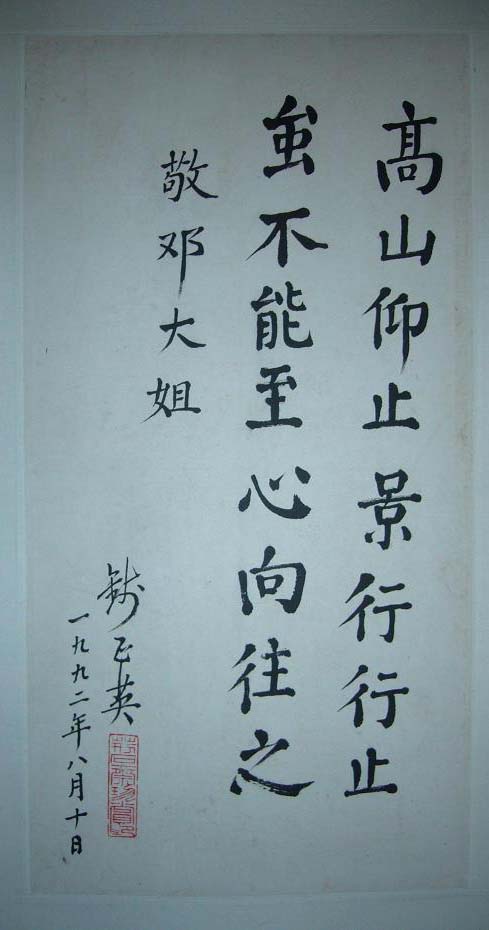 高山仰止景行行止
虽不能至心向往之
敬邓大姐
钱正英
一九九二年八月十日